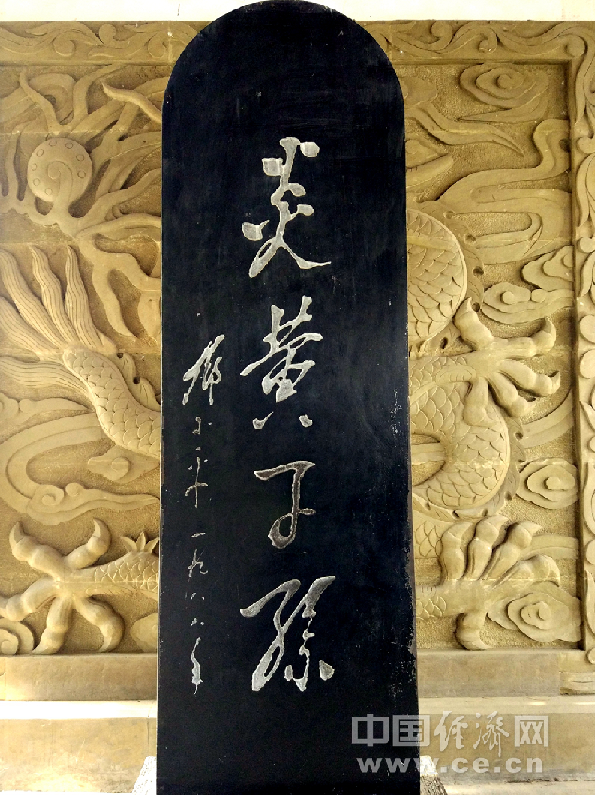 炎黄子孫
邓小平 一九八八年
中国经济网
www.ce.cn